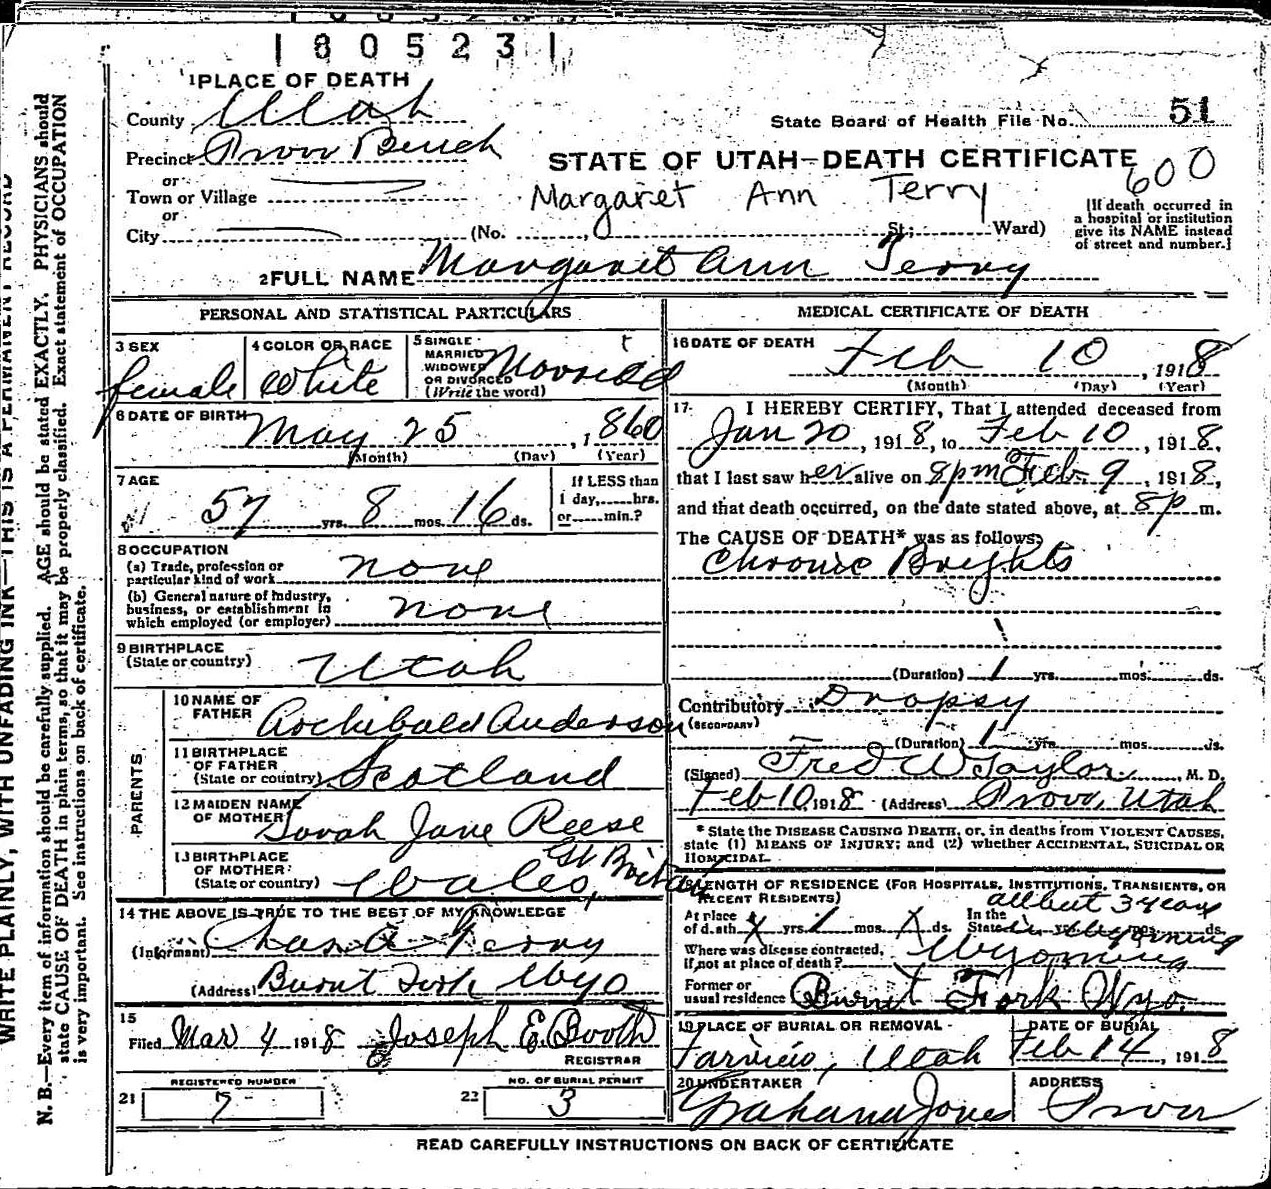 1805231
1 PLACE OF DEATH
County Utah
Precinct Provo Bench
or
Town or Village
or
City (No. , St; Ward)
State Board of Health File No. 51
STATE OF UTAH—DEATH CERTIFICATE
600
Margaret Ann Terry
[If death occurred in a hospital or institution give its NAME instead of street and number.]
2 FULL NAME Margaret Ann Terry
PERSONAL AND STATISTICAL PARTICULARS
3 SEX female
4 COLOR OR RACE White
5 SINGLE MARRIED WIDOWED OR DIVORCED (Write the word) Married
6 DATE OF BIRTH May 25, 1860
(Month) (Day) (Year)
7 AGE 57 yrs. 8 mos. 16 ds.
If LESS than 1 day, hrs. or min.?
8 OCCUPATION
(a) Trade, profession or particular kind of work none
(b) General nature of industry, business, or establishment in which employed (or employer) none
9 BIRTHPLACE
(State or country) Utah
PARENTS
10 NAME OF FATHER Archibald Anderson
11 BIRTHPLACE OF FATHER (State or country) Scotland
12 MAIDEN NAME OF MOTHER Sarah Jane Reese
13 BIRTHPLACE OF MOTHER (State or country) Wales, Gt Britain
14 THE ABOVE IS TRUE TO THE BEST OF MY KNOWLEDGE
(Informant) Chas A Terry
(Address) Burnt Fork Wyo
15
Filed Mar 4 1918 Joseph E. Booth
REGISTRAR
REGISTERED NUMBER
21 7
NO. OF BURIAL PERMIT
22 3
MEDICAL CERTIFICATE OF DEATH
16 DATE OF DEATH Feb 10, 1918
(Month) (Day) (Year)
17 I HEREBY CERTIFY, That I attended deceased from
Jan 20, 1918, to Feb 10, 1918,
that I last saw her alive on 8pm Feb 9, 1918,
and that death occurred, on the date stated above, at 8 p m.
The CAUSE OF DEATH* was as follows:
Chronic Brights
(Duration) 1 yrs. mos. ds.
Contributory Dropsy
(SECONDARY)
(Duration) 1 yrs. mos. ds.
(Signed) Fred W Taylor, M. D.
Feb 10, 1918 (Address) Provo, Utah
* State the DISEASE CAUSING DEATH, or, in deaths from VIOLENT CAUSES,
state (1) MEANS OF INJURY; and (2) whether ACCIDENTAL, SUICIDAL OR
HOMICIDAL.
LENGTH OF RESIDENCE (FOR HOSPITALS, INSTITUTIONS, TRANSIENTS, OR
RECENT RESIDENTS)
all but 3 years
At place of death X yrs. 1 mos. X ds. In the State yrs. mos. ds.
in Wyoming
Where was disease contracted, if not at place of death? Wyoming
Former or usual residence Burnt Fork Wyo.
19 PLACE OF BURIAL OR REMOVAL Fairview, Utah
DATE OF BURIAL Feb 14, 1918
20 UNDERTAKER Graham Jones
ADDRESS Provo
READ CAREFULLY INSTRUCTIONS ON BACK OF CERTIFICATE
WRITE PLAINLY, WITH UNFADING INK—THIS IS A PERMANENT RECORD
N. B.—Every item of information should be carefully supplied. AGE should be stated EXACTLY. PHYSICIANS should
state CAUSE OF DEATH in plain terms, so that it may be properly classified. Exact statement of OCCUPATION
is very important. See instructions on back of certificate.